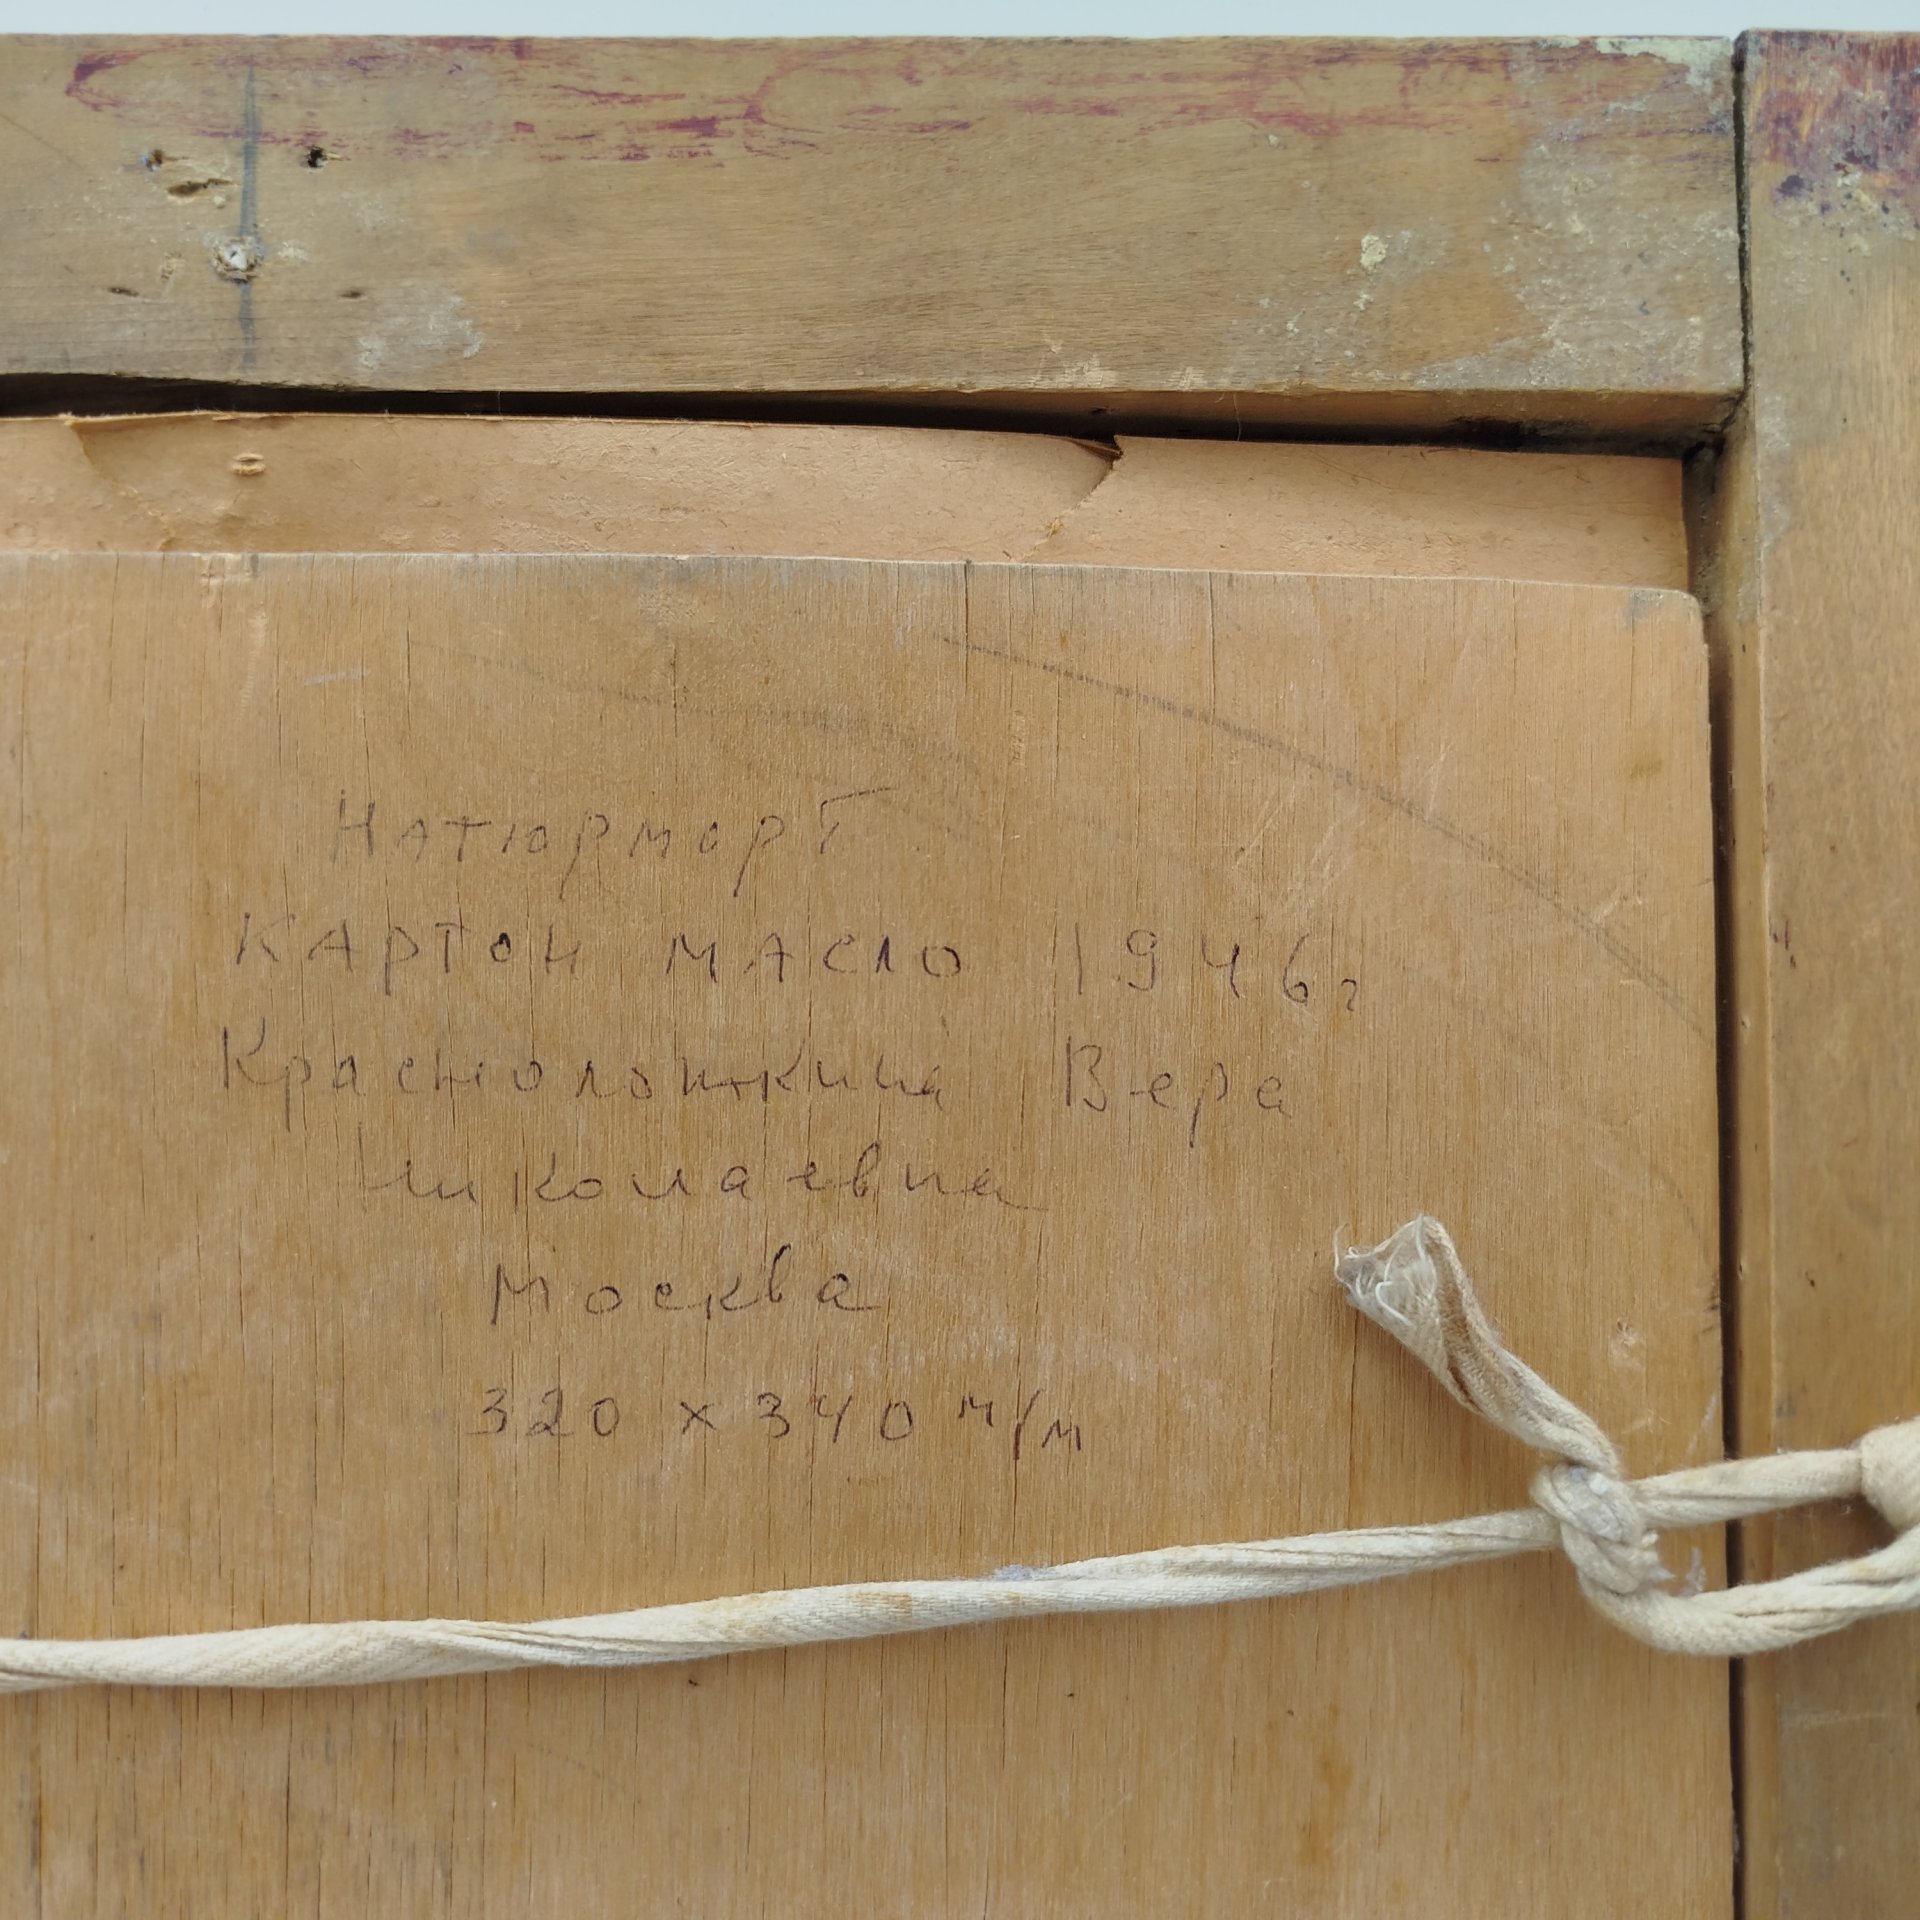 Натюрморт
картон масло 1946г
Вера
Николаевна
Москва
320 х 340 м/м